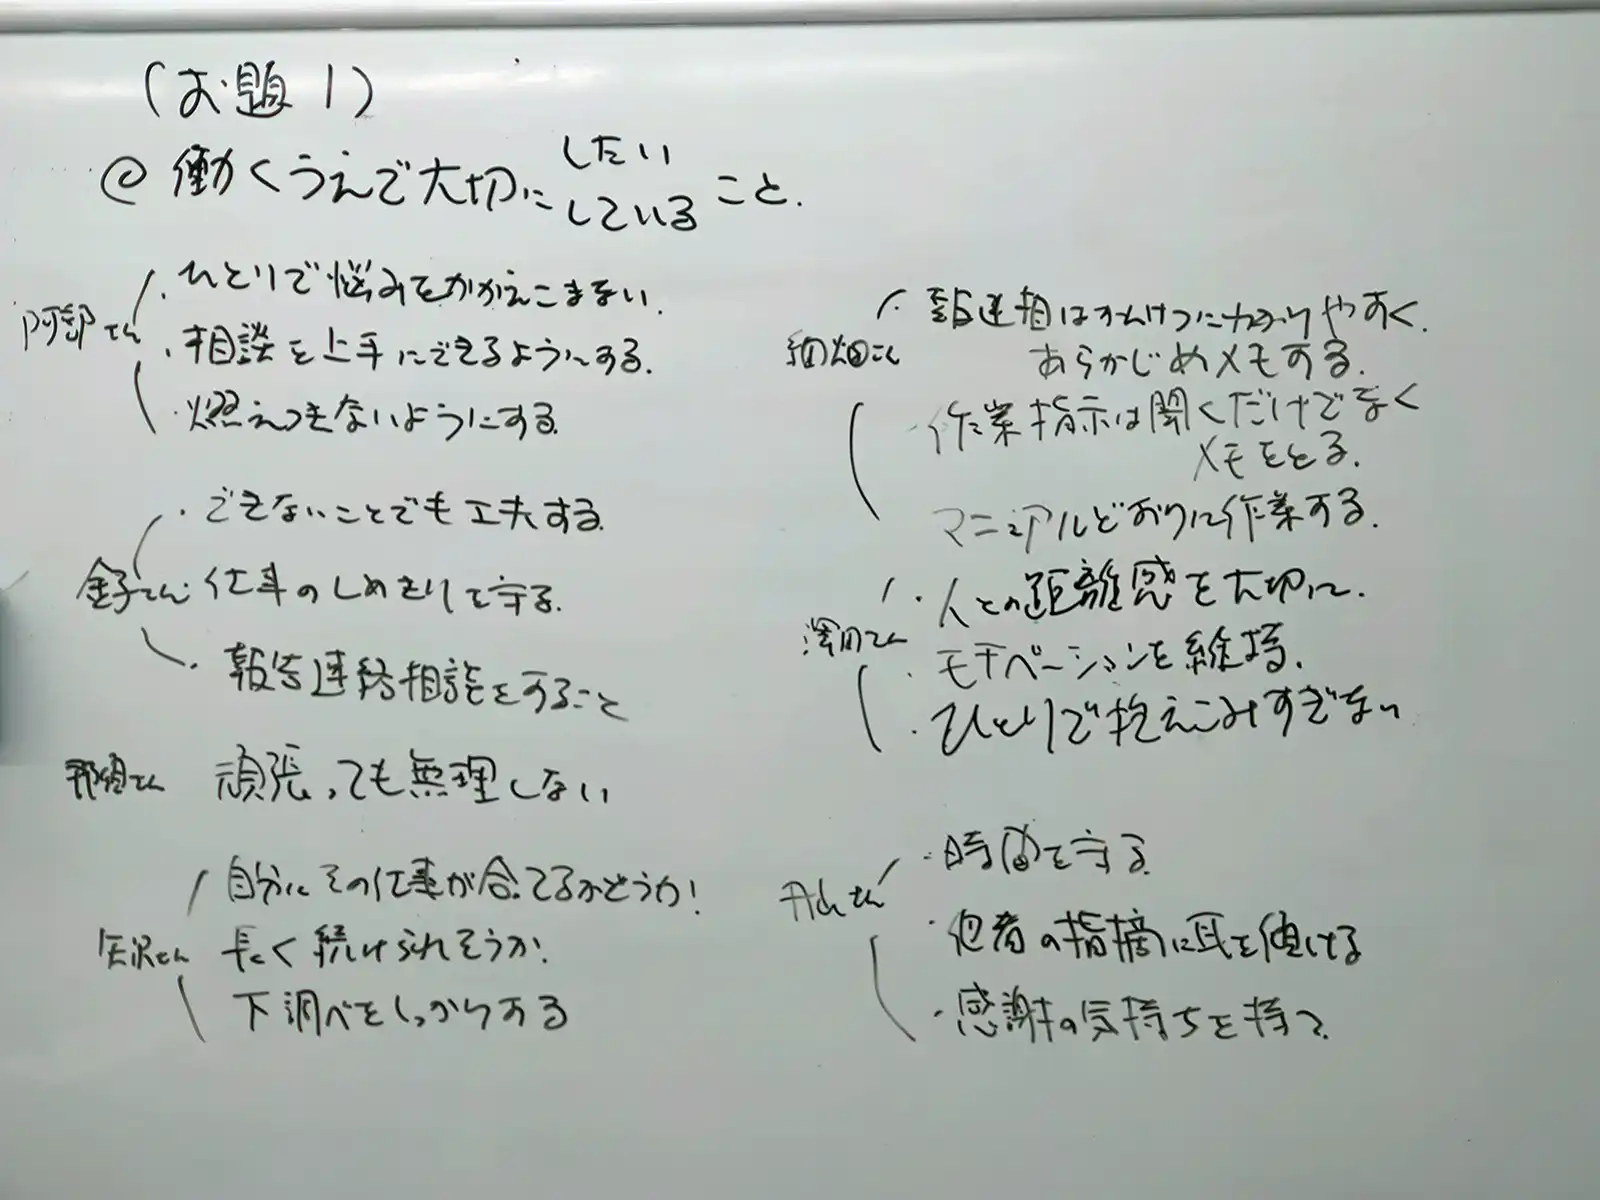 (お題1)
@ 働くうえで大切に したい している こと.
阿部さん
・ひとりで悩みをかかえこまない.
・相談を上手にできるようにする.
・燃えつきないようにする.
・できないことでも工夫する.
金子さん 仕事のしめきりを守る.
・報告連絡相談をすること
那須さん 頑張っても無理しない
自分にその仕事が合ってるかどうか!
矢沢さん 長く続けられそうか!
下調べをしっかりする
報連相はかんけつにわかりやすく.
細畑さん
あらかじめメモする.
・作業指示は聞くだけでなく
メモをとる.
マニュアルどおりに作業する.
・人との距離感を大切に.
澤田さん
・モチベーションを維持.
・ひとりで抱えこみすぎない
・時間を守る.
さん
・他者の指摘に耳を傾ける
・感謝の気持ちを持つ